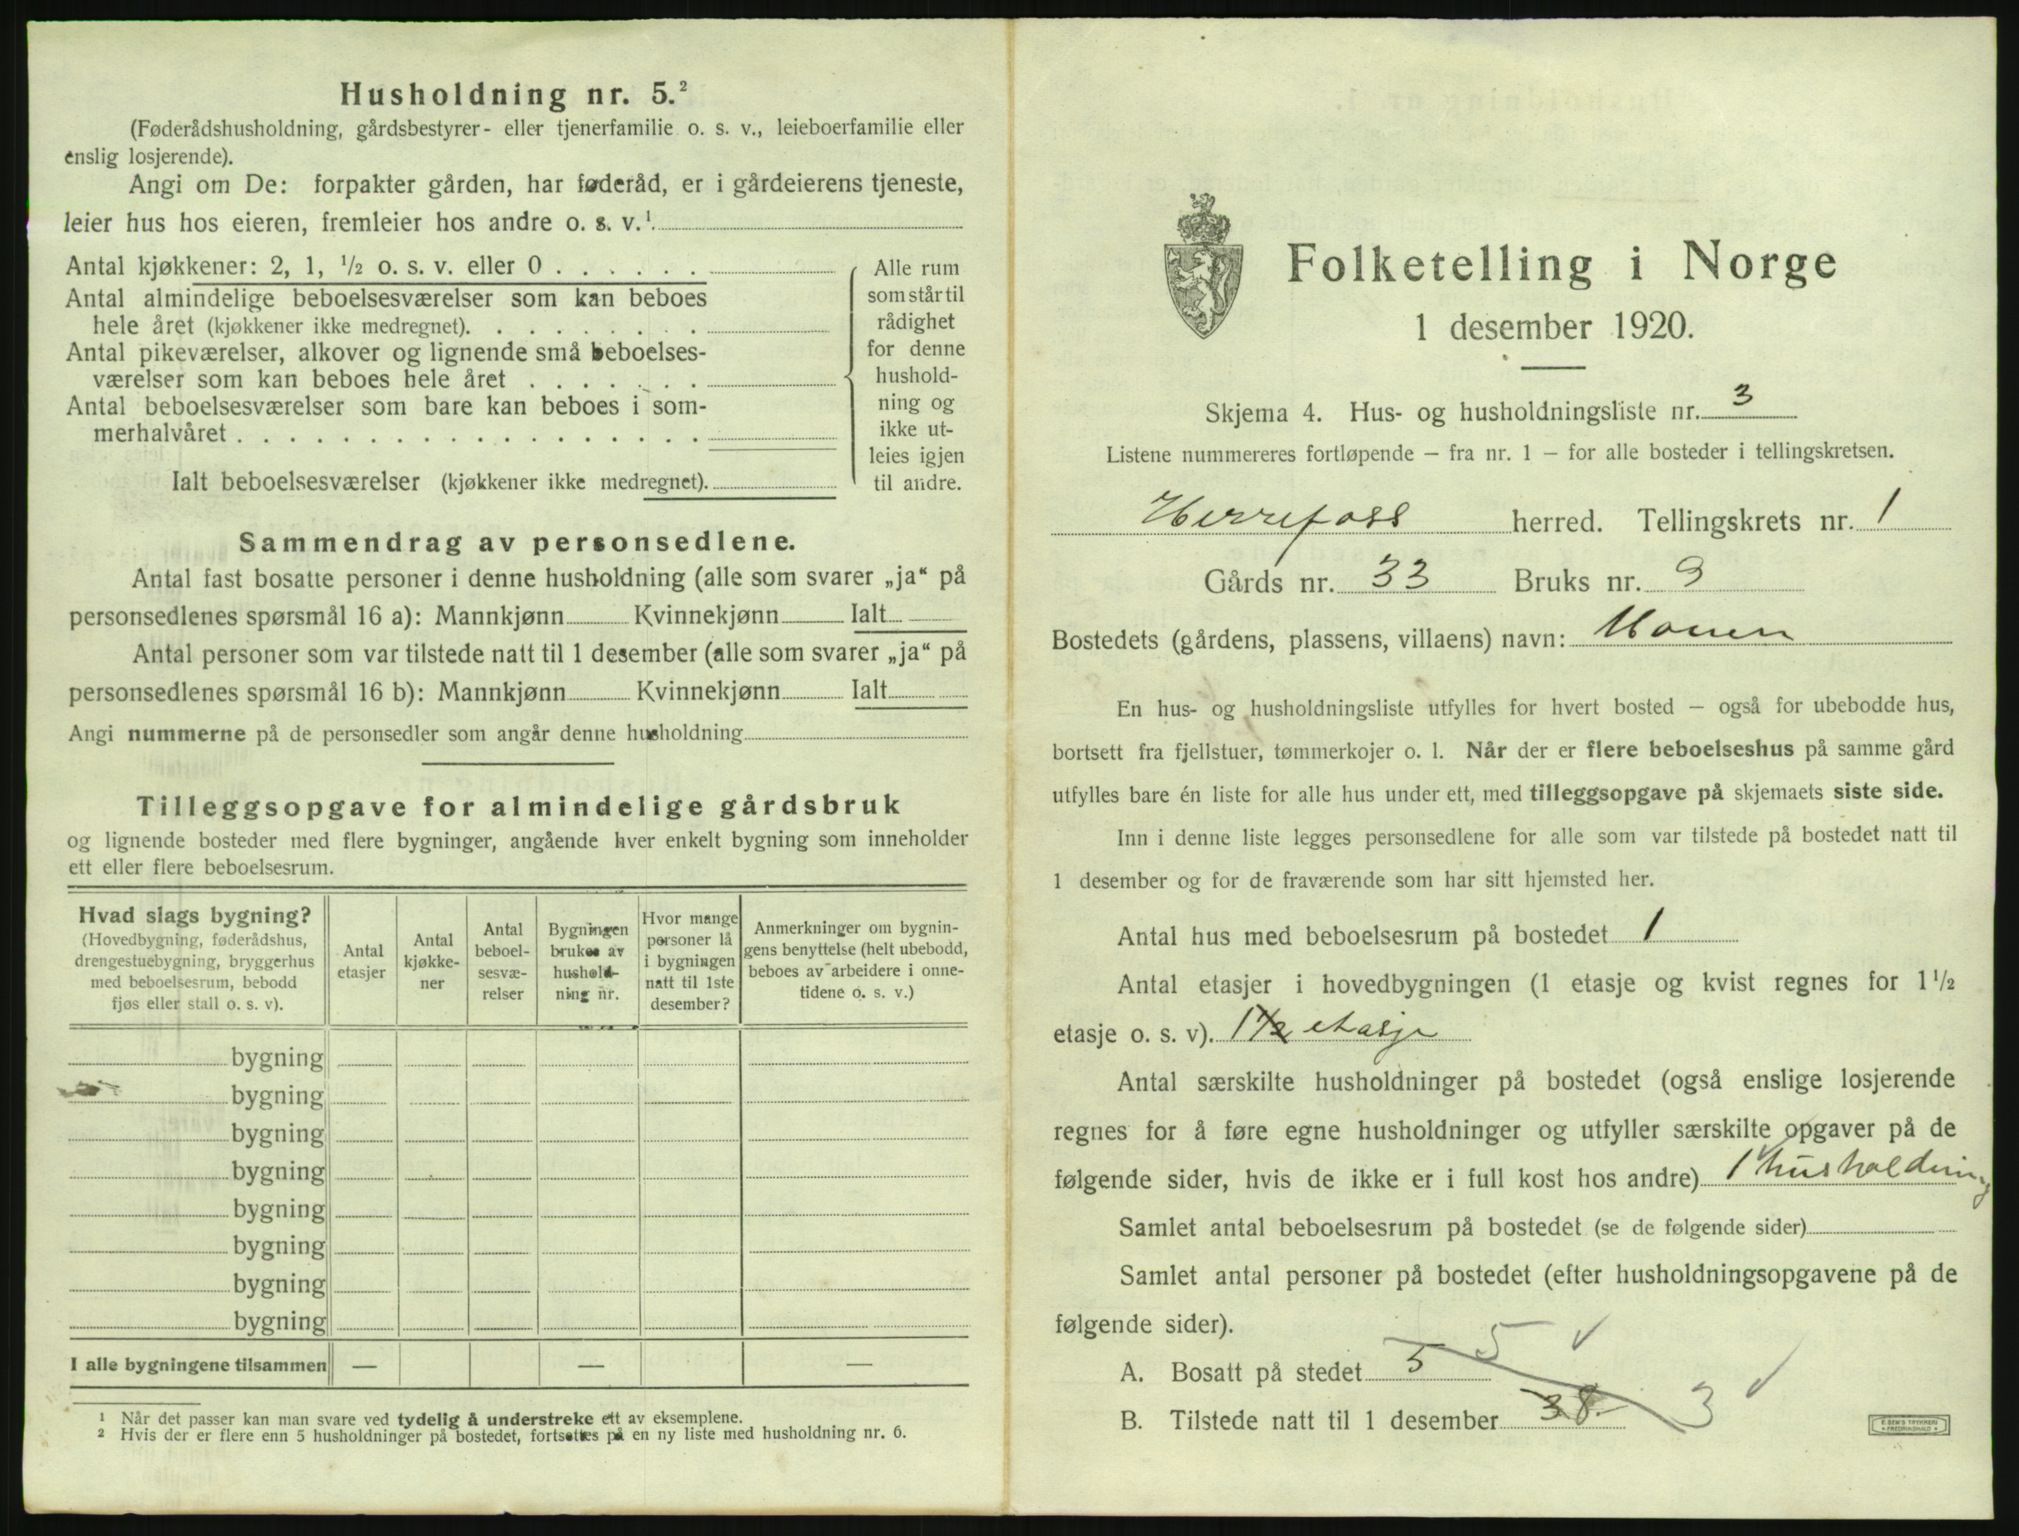 Husholdning nr. 5.²
(Føderådshusholdning, gårdsbestyrer- eller tjenerfamilie o. s. v., leieboerfamilie eller
enslig losjerende).
Angi om De: forpakter gården, har føderåd, er i gårdeierens tjeneste,
leier hus hos eieren, fremleier hos andre o. s. v.¹
Antal kjøkkener: 2, 1, ½ o. s. v. eller 0 . . . . . .
Antal almindelige beboelsesværelser som kan beboes
hele året (kjøkkener ikke medregnet). . . . . . . . .
Antal pikeværelser, alkover og lignende små beboelses-
værelser som kan beboes hele året . . . . . . .
Antal beboelsesværelser som bare kan beboes i som-
merhalvåret . . . . . . . . . . . . . . . . . .
Ialt beboelsesværelser (kjøkkener ikke medregnet).
Alle rum
som står til
rådighet
for denne
hushold-
ning og
ikke ut-
leies igjen
til andre.
Sammendrag av personsedlene.
Antal fast bosatte personer i denne husholdning (alle som svarer „ja“ på
personsedlenes spørsmål 16 a): Mannkjønn Kvinnekjønn Ialt
Antal personer som var tilstede natt til 1 desember (alle som svarer „ja“ på
personsedlenes spørsmål 16 b): Mannkjønn Kvinnekjønn Ialt
Angi nummerne på de personsedler som angår denne husholdning
Tilleggsopgave for almindelige gårdsbruk
og lignende bosteder med flere bygninger, angående hver enkelt bygning som inneholder
ett eller flere beboelsesrum.
Hvad slags bygning?
(Hovedbygning, føderådshus,
drengestuebygning, bryggerhus
med beboelsesrum, bebodd
fjøs eller stall o. s. v).
Antal
etasjer
Antal
kjøkke-
ner
Antal
beboel-
sesvæ-
relser
Bygningen
brukes av
hushold-
ning nr.
Hvor mange
personer lå
i bygningen
natt til 1ste
desember?
Anmerkninger om bygnin-
gens benyttelse (helt ubebodd,
beboes av arbeidere i onne-
tidene o. s. v.)
bygning
bygning
bygning
bygning
bygning
bygning
bygning
bygning
I alle bygningene tilsammen — — —
¹ Når det passer kan man svare ved tydelig å understreke ett av eksemplene.
² Hvis der er flere enn 5 husholdninger på bostedet, fortsettes på en ny liste med husholdning nr. 6.
Folketelling i Norge
1 desember 1920.
Skjema 4. Hus- og husholdningsliste nr. 3
Listene nummereres fortløpende – fra nr. 1 – for alle bosteder i tellingskretsen.
Herrefoss herred. Tellingskrets nr. 1
Gårds nr. 33 Bruks nr. 9
Bostedets (gårdens, plassens, villaens) navn: Monen
En hus- og husholdningsliste utfylles for hvert bosted – også for ubebodde hus,
bortsett fra fjellstuer, tømmerkojer o. l. Når der er flere beboelseshus på samme gård
utfylles bare én liste for alle hus under ett, med tilleggsopgave på skjemaets siste side.
Inn i denne liste legges personsedlene for alle som var tilstede på bostedet natt til
1 desember og for de fraværende som har sitt hjemsted her.
Antal hus med beboelsesrum på bostedet 1
Antal etasjer i hovedbygningen (1 etasje og kvist regnes for 1½
etasje o. s. v). 1½ etasje
Antal særskilte husholdninger på bostedet (også enslige losjerende
regnes for å føre egne husholdninger og utfyller særskilte opgaver på de
følgende sider, hvis de ikke er i full kost hos andre) 1 husholdning
Samlet antal beboelsesrum på bostedet (se de følgende sider)
Samlet antal personer på bostedet (efter husholdningsopgavene på de
følgende sider).
A. Bosatt på stedet 5 5 ✓
B. Tilstede natt til 1 desember 38. 3 ✓